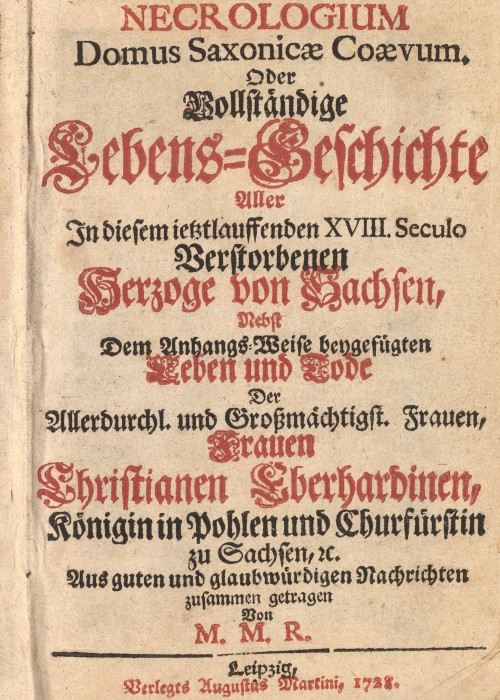 NECROLOGIUM
Domus Saxonicæ Coævum.
Oder
Vollständige
Lebens=Geschichte
Aller
In diesem ietztlauffenden XVIII. Seculo
Verstorbenen
Hertzoge von Sachsen,
Nebst
Dem Anhangs-Weise beygefügten
Leben und Tode
Der
Allerdurchl. und Großmächtigst. Frauen,
Frauen
Christianen Eberhardinen,
Königin in Pohlen und Churfürstin
zu Sachsen, ꝛc.
Aus guten und glaubwürdigen Nachrichten
zusammen getragen
Von
M. M. R.
Leipzig,
Verlegts Augustus Martini, 1728.